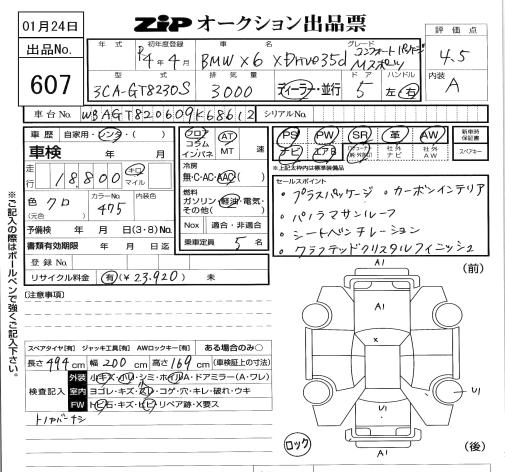 01月24日
ZIP オークション出品票
出品No.
607
評価点
4.5
内装
A
年式
初年度登録
R4年4月
車名
BMW X6 XDrive35d
グレード
コンフォートパッケージ
Mスポーツ
型式
3CA-GT8230S
排気量
3000
ディーラー・並行
ドア
5
ハンドル
左・右
車台No.
WBAGT820609K68612
シリアルNo.
車歴 自家用・レンタ・( )
車検 年 月
走行
18,800
キロ
マイル
色 クロ
(元色)
カラーNo.
475
内装色
予備検 年 月 日(3・8)No.
書類有効期限 年 月 日迄
登録No.
リサイクル料金 有(¥23,920) 未
フロア
コラム
インパネ
AT
MT
速
冷房
無・C・AC・AAC
燃料
ガソリン・軽油・電気・
その他( )
Nox 適合・非適合
乗車定員 5 名
PS PW SR 革 AW
ナビ エアB
社外
ナビ
社外
AW
新車時
保証書
スペアキー
※上記太枠内は標準装備品
セールスポイント
・プラスパッケージ ・カーボンインテリア
・パノラマサンルーフ
・シートベンチレーション
・クラフテッドクリスタルフィニッシュ
※ご記入の際はボールペンで強くご記入下さい。
[注意事項]
スペアタイヤ[有] ジャッキ工具[有] AWロックキー[有] ある場合のみ○
長さ 494cm 幅 200cm 高さ 169cm (車検証上の寸法)
検査記入
外装 小キズ・小U・シミ・ホイルA・ドアミラー(A・ワレ)
室内 ヨゴレ・キズ・スレ・コゲ・穴・キレ・破れ・ウキ
FW トビ石・キズ・ヒビ・リペア跡・X要ス
トノカバーナシ
(前)
A1
A1
X
U1
U1
A1
ロック
(後)